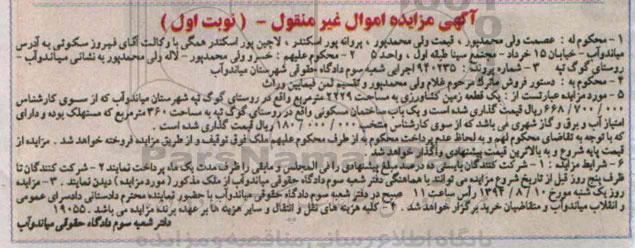 آگهی مزایده اموال غیر منقول - ( نوبت اول )
۱ - محکوم له : عصمت ولی محمدپور ، قیمت ولی محمدپور ، پروانه پور اسکندر ، لاچین پور اسکندر همگی با وکالت آقای فیروز سکوتی به آدرس
میاندوآب - خیابان ۱۵ خرداد - مجتمع سینا طبقه اول ، واحد ۵ ۲ - محکوم علیهم : خسرو ولی محمدپور - لاله ولی محمدپور به نشانی میاندوآب -
روستای گوگ تپه ۳ - شماره پرونده : ۹۴۰۲۳۵ اجرایی شعبه سوم دادگاه حقوقی شهرستان میاندوآب
۴ - محکوم به : دستور فروش ماترک مرحوم غلام ولی محمدپور و تقسیم ثمن فیمابین وراث
۵ - مورد مزایده عبارتست از : یک قطعه زمین کشاورزی به مساحت ۲۲۲۹ مترمربع واقع در روستای گوگ تپه شهرستان میاندوآب که از سوی کارشناس
۶۶۸/۷۰۰/۰۰۰ ریال قیمت گذاری شده است و یک باب ساختمان مسکونی واقع در روستای گوگ تپه به مساحت ۳۶۰ مترمربع که مستهلک بوده و دارای
امتیاز آب و برق و گاز شهری می باشد که از سوی کارشناس منتخب ۱۸۰/۰۰۰/۰۰۰ ریال قیمت گذاری شده است .
که با توجه به تقاضای محکوم لهم و به لحاظ عدم پرداخت محکوم به از طرف محکوم علیهم ملک فوق توقیف و از طریق مزایده فروخته خواهد شد . مزایده از
قیمت پایه شروع و به بالاترین قیمت پیشنهادی واگذار خواهد شد .
۶ - شرایط مزایده : ۱ - شرکت کنندگان بایستی ده درصد مبلغ پیشنهادی را فی المجلس و مابقی را ظرف مدت یک ماه پرداخت نمایند ۲ - شرکت کنندگان تا
ظرف پنج روز قبل از تاریخ شروع مزایده می توانند با هماهنگی دفتر شعبه سوم دادگاه حقوقی میاندوآب از ملک مذکور ( مورد مزایده ) دیدن نمایند . ۳ - مزایده
روز یک شنبه مورخ ۱۳۹۴/۸/۱۰ رأس ساعت ۱۱ صبح در دفتر شعبه سوم دادگاه حقوقی میاندوآب با حضور نماینده محترم دادستانی دادسرای عمومی
و انقلاب میاندوآب و متقاضیان خرید برگزار خواهد شد . ۴ - کلیه هزینه های نقل و انتقال و سایر هزینه ها بر عهده برنده مزایده می باشد . ۱۹۰۵۵
دفتر شعبه سوم دادگاه حقوقی میاندوآب